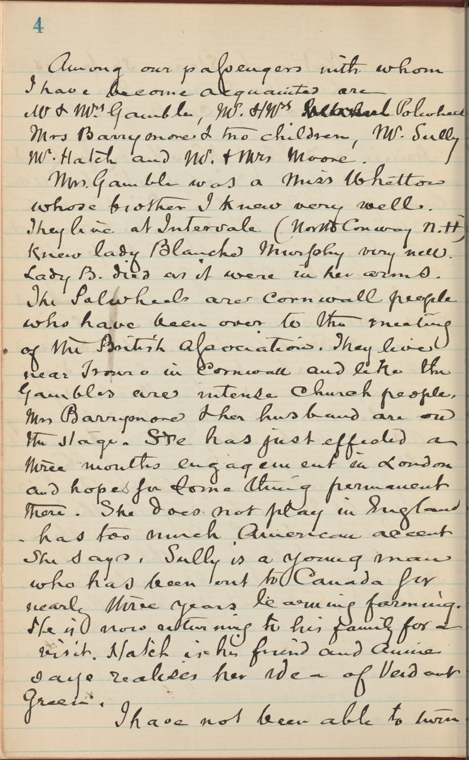 4
Among our passengers with whom
I have become acquainted are
Mr & Mrs Gamble, Mr. & Mrs Polwheel
Mrs Barrymore & two children, Mr. Sully
Mr. Hatch and Mr. & Mrs Moore.
Mrs. Gamble was a Miss Whetton
whose brother I knew very well.
They live at Intervale (North Conway N.H)
knew lady Blanche Murphy very well.
Lady B. died as it were in her arms.
The Polwheels are Cornwall people
who have been over to the meeting
of the British Association. They live
near Truro in Cornwall and like the
Gambles are intense Church people.
Mrs Barrymore & her husband are on
the stage. She has just effected a
three months engagement in London
and hopes for some thing permanent
there. She does not play in England
- has too much American accent
She says. Sully is a young man
who has been out to Canada for
nearly three years learning farming.
He is now returning to his family for a
visit. Hatch is his friend and Annie
says realises her idea of Verdant
Green.
I have not been able to turn